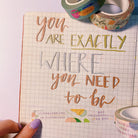 you
ARE EXACTLY
WHERE
you NEED
to be